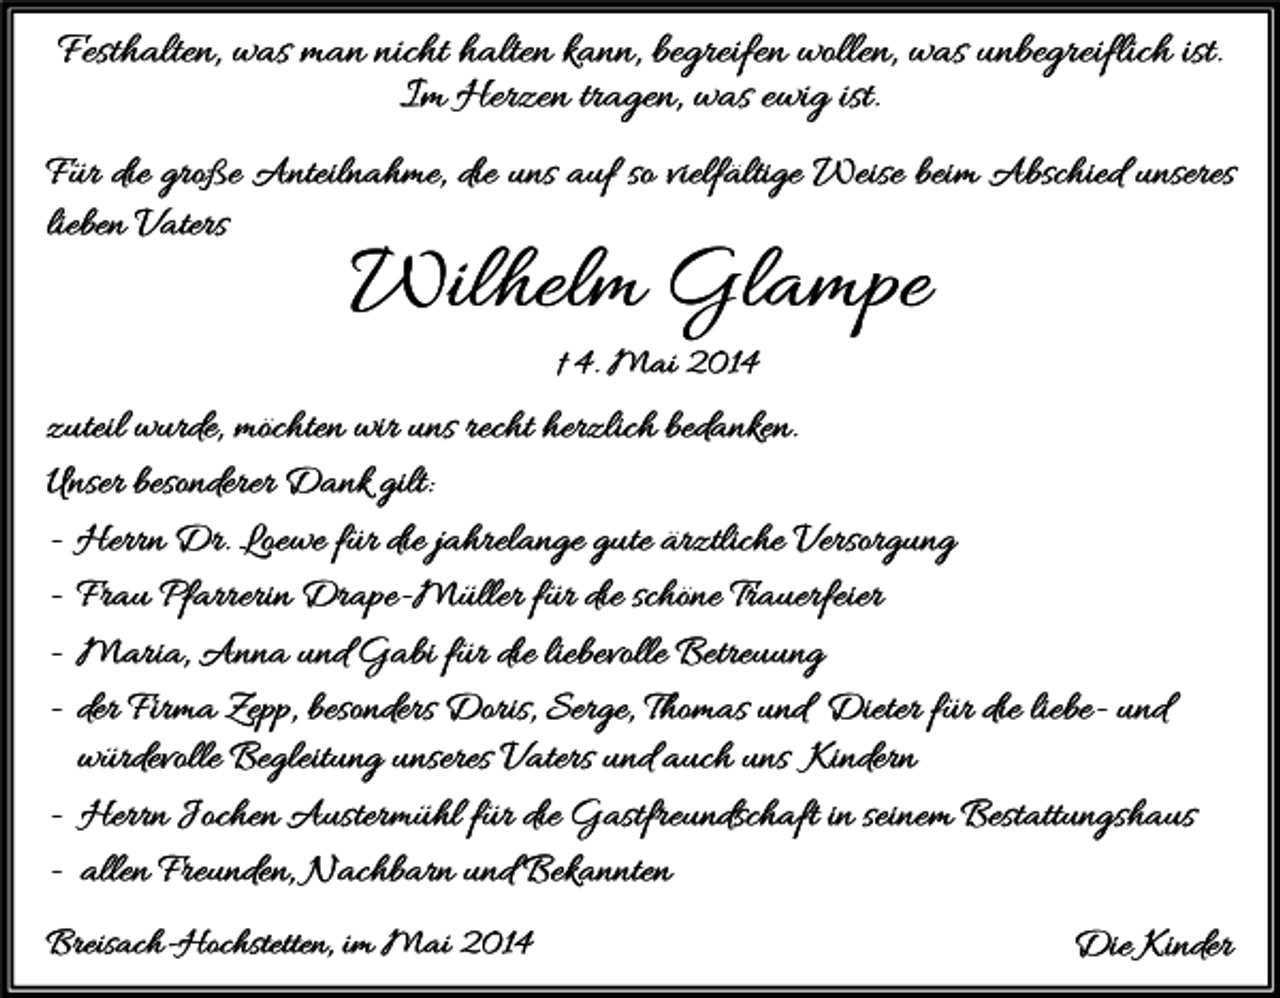 Festhalten, was man nicht halten kann, begreifen wollen, was unbegreiflich ist.
Im Herzen tragen, was ewig ist.
Für die große Anteilnahme, die uns auf so vielfältige Weise beim Abschied unseres
lieben Vaters
Wilhelm Glampe
† 4. Mai 2014
zuteil wurde, möchten wir uns recht herzlich bedanken.
Unser besonderer Dank gilt:
- Herrn Dr. Loewe für die jahrelange gute ärztliche Versorgung
- Frau Pfarrerin Drape-Müller für die schöne Trauerfeier
- Maria, Anna und Gabi für die liebevolle Betreuung
- der Firma Zepp, besonders Doris, Serge, Thomas und Dieter für die liebe- und
würdevolle Begleitung unseres Vaters und auch uns Kindern
- Herrn Jochen Austermühl für die Gastfreundschaft in seinem Bestattungshaus
- allen Freunden, Nachbarn und Bekannten
Breisach-Hochstetten, im Mai 2014 Die Kinder